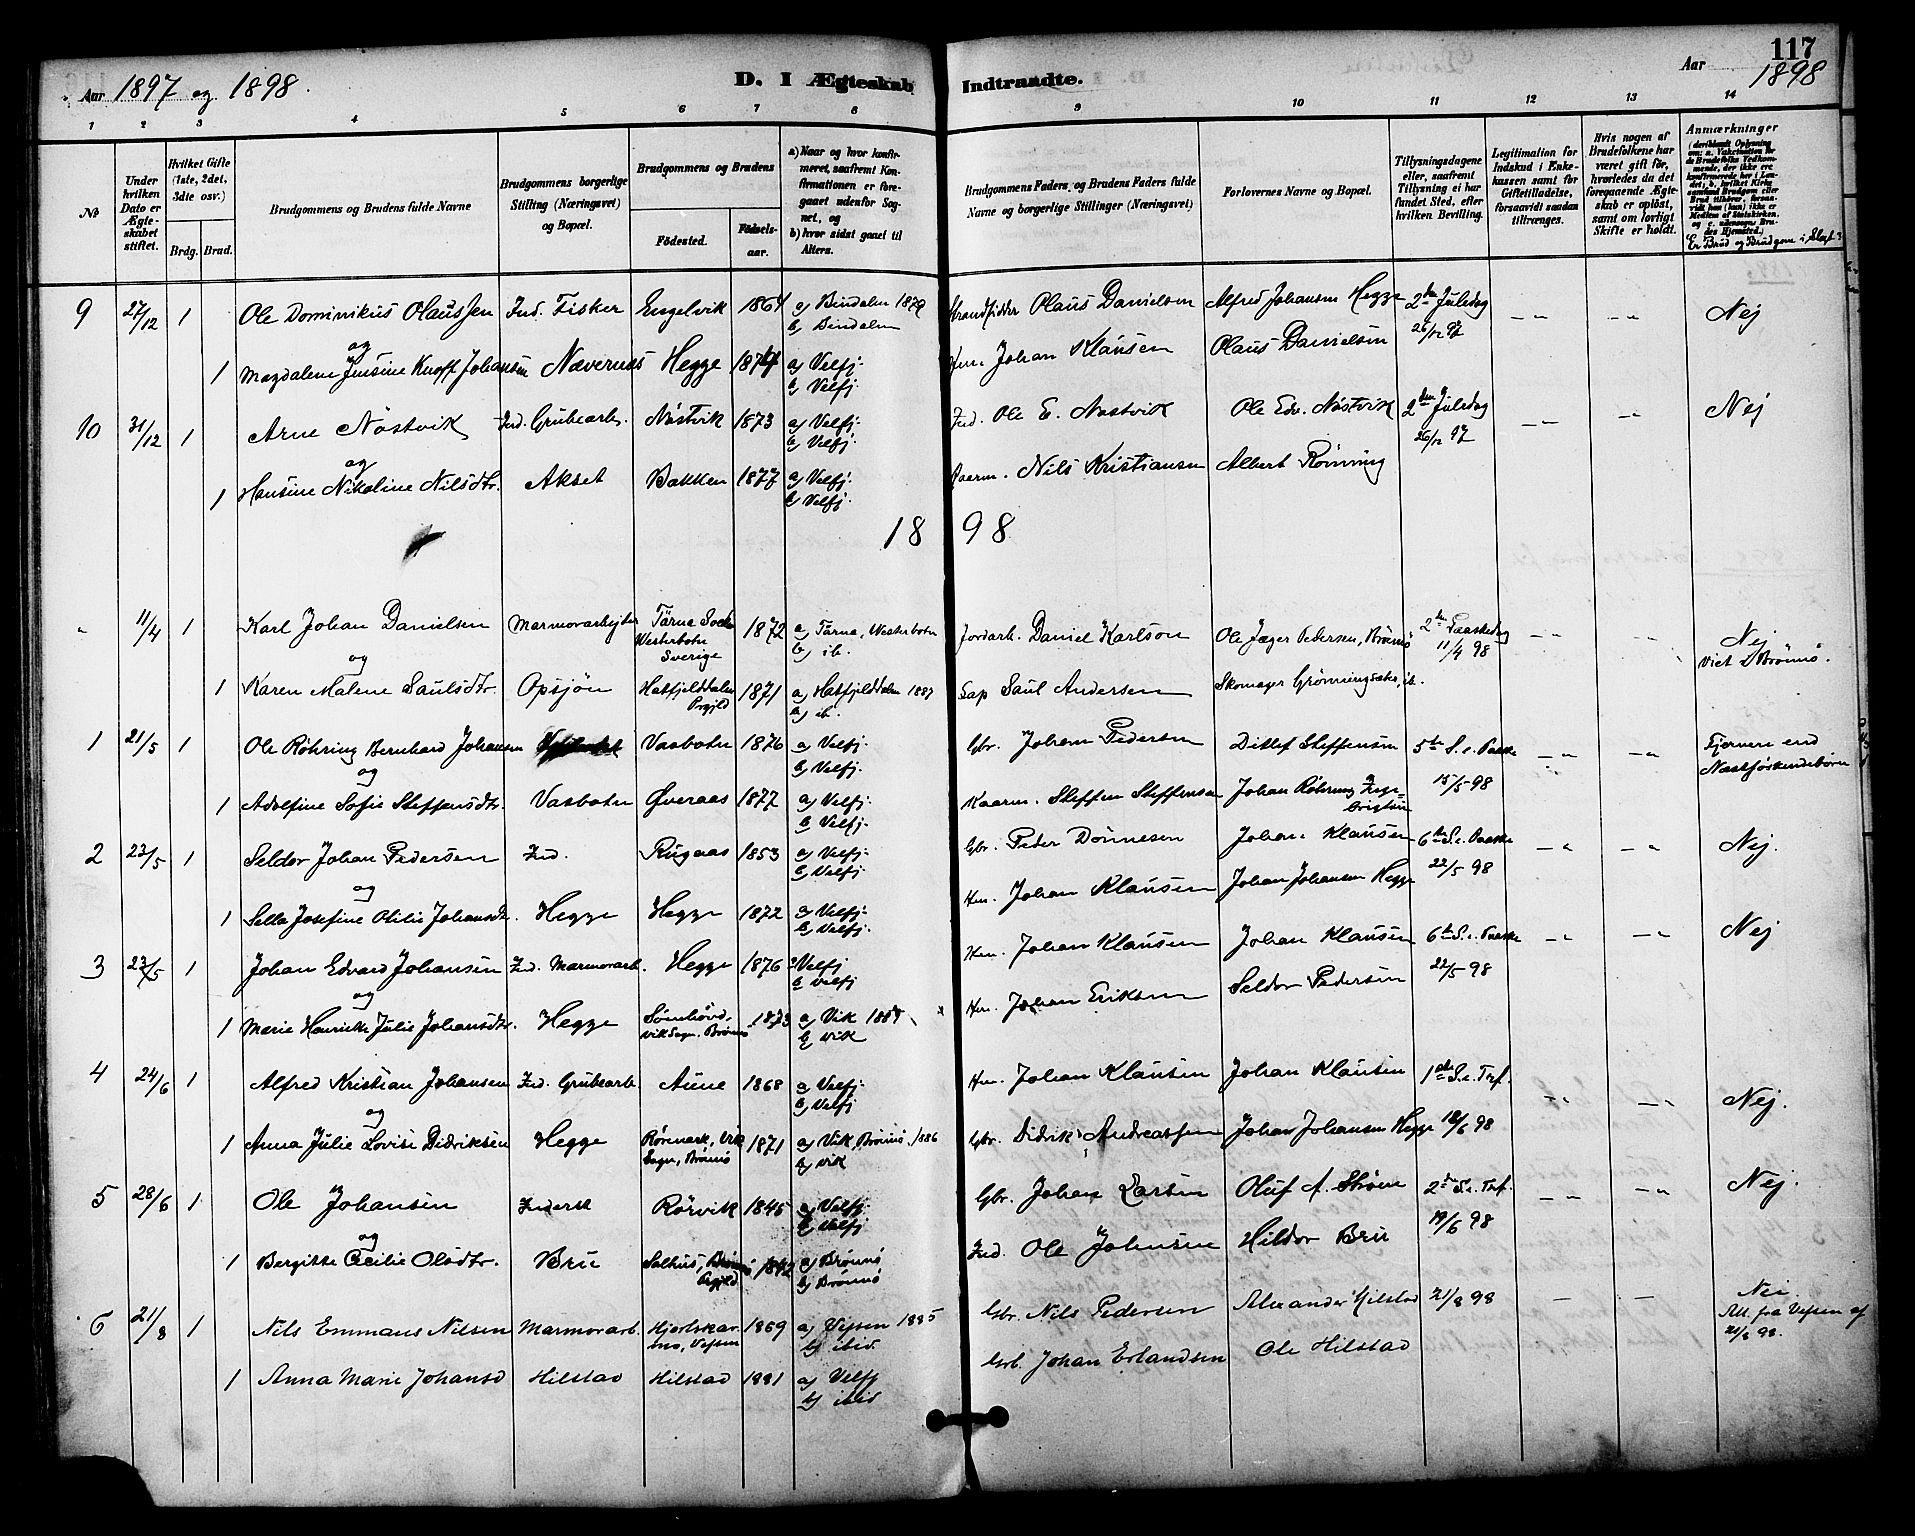 117
Aar 1897 og 1898.
D. I Ægteskab Indtraadte.
Aar 1898
1 2 3 4 5 6 7 8 9 10 11 12 13 14
No
Under hvilken Dato er Ægteskabet stiftet.
Hvilket Gifte (1ste, 2det, 3die osv.)
Brdg. Brud.
Brudgommens og Brudens fulde Navne
Brudgommens borgerlige Stilling (Næringsvei) og Bopæl.
Brudgommens og Brudens
Födested. Födselsaar.
a) Naar og hvor konfirmeret, saafremt Konfirmationen er foregaaet udenfor Sognet, og
b) hvor sidst gaaet til Alters.
Brudgommens Faders og Brudens Faders fulde Navne og borgerlige Stillinger (Næringsvei)
Forlovernes Navne og Bopæl.
Tillysningsdagene eller, saafremt Tillysning ei har fundet Sted, efter hvilken Bevilling.
Legitimation for Indskud i Enkekassen samt for Giftetilladelse, forsaavidt saadan tiltrænges.
Hvis nogen af Brudefolkene har været gift för, hvorledes da det foregaaende Ægteskab er oplöst, samt om lovligt Skifte er holdt.
Anmærkninger
Er Brud og Brudgom i Slægt?
9 27/12 1 Ole Dominikus Olaussen Ind. Fisker Engelvik 1864 a) Bindalen 1879 b) Bindalen Strandsidder Olaus Danielsen Alfred Johansen Hegge 2den Juledag 26/12 97 Nej
og
1 Magdalene Jensine Knoff Johansen Nævernes Hegge 1874 a) Velfj. b) Velfj. Johan Klausen Olaus Danielsen
10 31/12 1 Arne Nöstvik Ind. Grubearb. Nöstvik 1873 a) Velfj. b) Velfj. Ind. Ole E. Nöstvik Ole Edv. Nöstvik 2den Juledag 26/12 97 Nej
og
1 Hansine Nikoline Nilsdtr. Akset Bakken 1877 a) Velfj. b) Velfj. Kaarm. Nils Kristiansen Albert Rönning
1898
" 11/4 1 Karl Johan Danielsen Marmorarbejder Tärna Westerbotn Sverige 1872 a) Tärna, Westerbotn b) ib. Jordarb. Daniel Karlson Ole Jæger Pedersen, Brönnö 2den Paaskedag 11/4 98 Nej Viet i Brönnö.
og
1 Karen Malene Saulsdtr. Opsjön Hatfjelddalen Prgjld 1871 a) Hatfjelddalen 1887 b) ib. Lap Saul Andersen Skomager Grönningsæter, ib.
1 21/5 1 Ole Röhring Bernhard Johansen Vasbotn 1876 a) Velfj. b) Velfj. Gbr. Johan Pedersen Ditlef Steffensen 5te S. e. Paaske 15/5 98 Fjernere end Næstsöskendebörn
og
1 Adolfine Sofie Steffensdtr. Vasbotn Øveraas 1877 a) Velfj. b) Velfj. Kaarm. Steffen Steffensen Johan Röhring
2 23/5 1 Seldor Johan Pedersen Ind. Rugaas 1853 a) Velfj. b) Velfj. Gbr. Peder Dönnesen Johan Klausen 6te S. e. Paaske 22/5 98 Nej.
og
1 Sella Josefine Otilie Johansdtr. Hegge Hegge 1872 a) Velfj. b) Velfj. Hm. Johan Klausen Johan Johansen Hegge
3 23/5 1 Johan Edvard Johansen Ind. Marmorarb. Hegge 1876 a) Velfj b) Velfj Hm. Johan Klausen Johan Klausen 6te S. e. Paaske 22/5 98 Nej
og
1 Marie Henrikke Julie Johansdtr. Hegge Sömhövd, Vik Sogn, Brönnö 1873 a) Vik b) Vik Hm. Johan Eriksen Seldor Pedersen
4 24/6 1 Alfred Kristian Johansen Ind. Grubearb Aune 1868 a) Velfj. b) Velfj Hm. Johan Klausen Johan Klausen 1ste S. e. Tref. 98 Nej.
og
1 Anna Julie Lovise Didriksen Hegge Rörmark, Vik Sogn, Brönnö 1871 a) Vik, Brönnö, 1886 b) Vik Gbr. Didrik Andreassen Johan Johansen Hegge
5 28/6 1 Ole Johansen Inderst Rörvik 1845 a) Velfj. b) Velfj Gbr. Johan Larsen Oluf A. Ström 2den S. e. Tref. 19/6 98 Nej.
og
1 Bergitte Cecilie Olsdtr. Bru Salhus, Brönnö Prgjld a) Brönnö b) Brönnö Ind. Ole Johnsen Hildor Bru
6 21/8 1 Nils Emmans Nilsen Marmorarb Hjortskarmo, Vefsen 1869 a) Vefsen 1885 b) ibid. Gbr. Nils Pedersen Alexander Hilstad 21/8 98 Nei. Att. fra Vefsen af 21/8 98.
1 Anna Marie Johansd Hilstad Hilstad 1881 a) Velfj b) ibid Grb. Johan Erlandsen Ole Hilstad